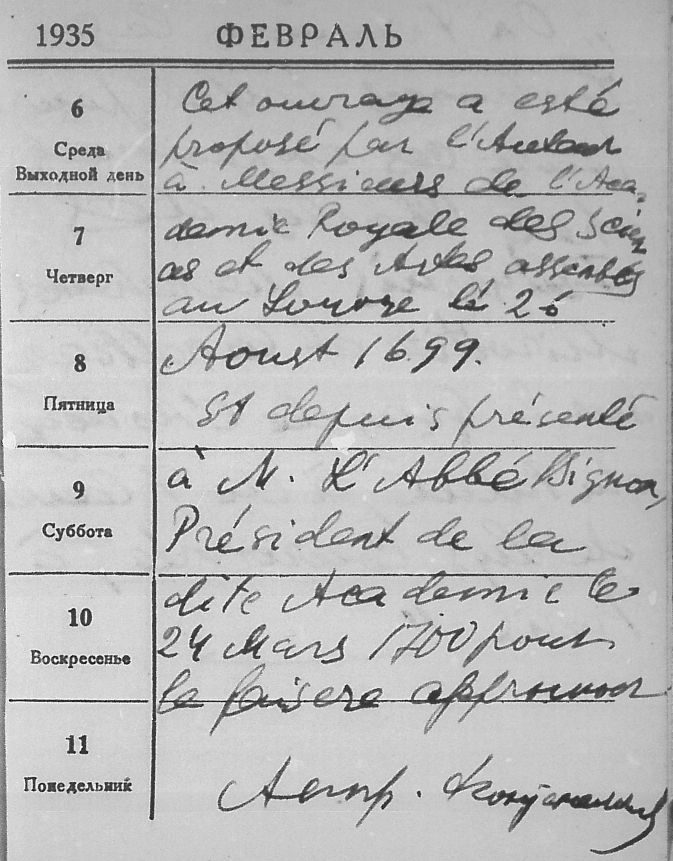 1935 ФЕВРАЛЬ
6
Среда
Выходной день
Cet ouvrage a esté
proposé par l'Auteur
à Messieurs de l'Aca-
7
Четверг
demie Royale des Scien
ces et des Artes assembés
au Louvre le 26
8
Пятница
Aoust 1699.
et depuis présenté
9
Суббота
à M. L'Abbé Bignon,
Président de la
10
Воскресенье
dite Academie le
24 Mars 1700 pour
le faisere approuver
11
Понедельник